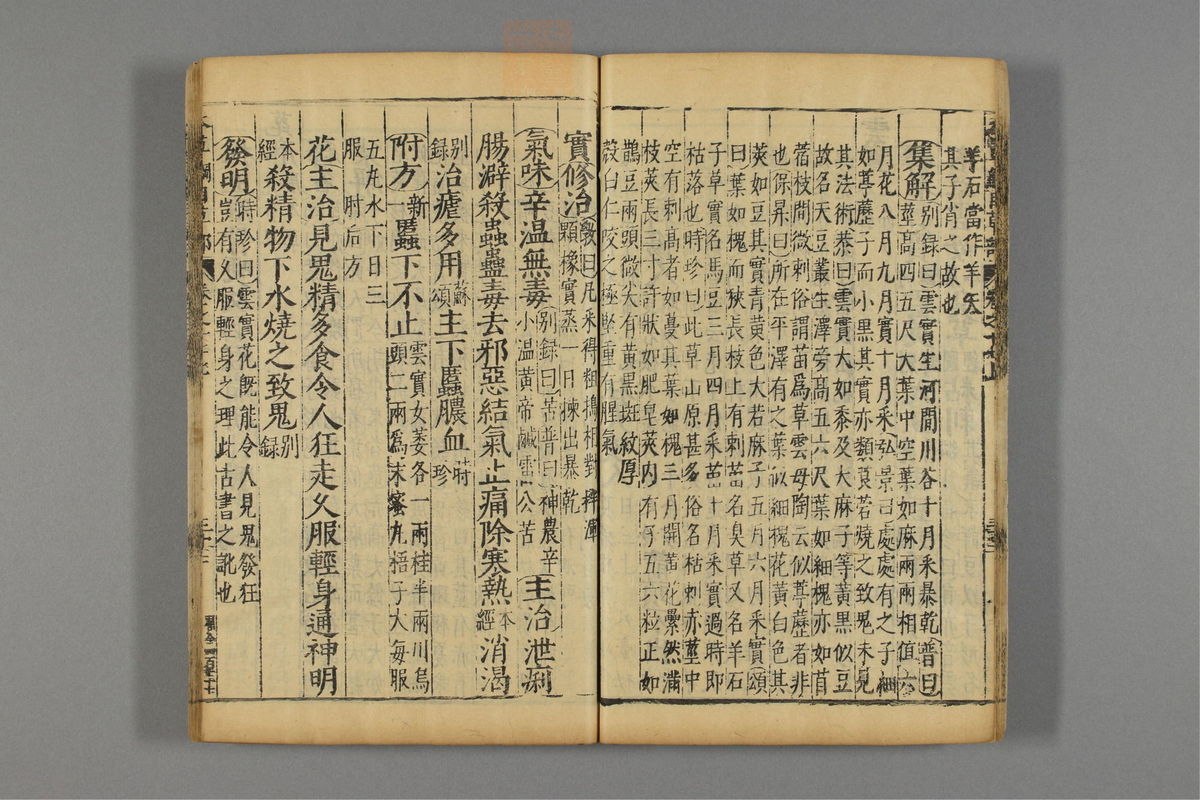 羊石當作羊矢
其子肖之故也
集解別録曰雲實生河間川谷十月采暴乾普曰
莖高四五尺大葉中空葉如麻兩兩相值六
月花八月九月實十月采弘景曰處處有之子細
如葶藶子而小黑其實亦類莨菪燒之致鬼未見
其法術恭曰雲實大如黍及大麻子等黃黑似豆
故名天豆叢生澤旁高五六尺葉如細槐亦如苜
蓿枝間微刺俗謂苗為草雲母陶云似葶藶者非
也保昇曰所在平澤有之葉似細槐花黃白色其
莢如豆其實青黃色大若麻子五月六月采實頌
曰葉如槐而狹長枝上有刺苗名臭草又名羊石
子草實名馬豆三月四月采苗十月采實過時即
枯落也時珍曰此草山原甚多俗名粘刺赤莖中
空有刺高者如蔓其葉如槐三月開黃花纍然滿
枝莢長三寸許狀如肥皂莢內有子五六粒正如
鵲豆兩頭微尖有黃黑斑紋厚
殼白仁咬之極堅重有腥氣
實修治斅曰凡采得粗擣相對拌渾
顆橡實蒸一日揀出暴乾
氣味辛溫無毒別録曰苦普曰神農辛
小溫黃帝鹹雷公苦
主治泄痢
腸澼殺蟲蠱毒去邪惡結氣止痛除寒熱本經消渴
別録治瘧多用蘇頌主下䘌膿血時珍
附方新一䘌下不止雲實女萎各一兩桂半兩川烏
頭二兩為末蜜丸梧子大每服
五丸水下日三
服肘后方
花主治見鬼精多食令人狂走久服輕身通神明
本經殺精物下水燒之致鬼別録
發明時珍曰雲實花既能令人見鬼發狂
豈有久服輕身之理此古書之訛也